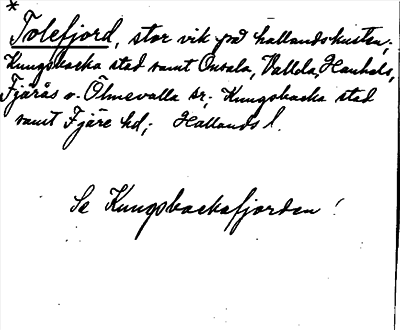 *
Tolefjord, stor vik på hallandskusten;
Kungsbacka stad samt Onsala, Vallda, Hanhals,
Fjärås o. Ölmevalla sr; Kungsbacka stad
samt Fjäre hd; Hallands l.
Se Kungsbackafjorden!